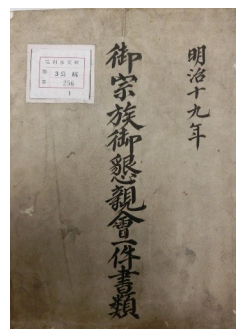 明治十九年
御宗族御懇親會一件書類
256
1